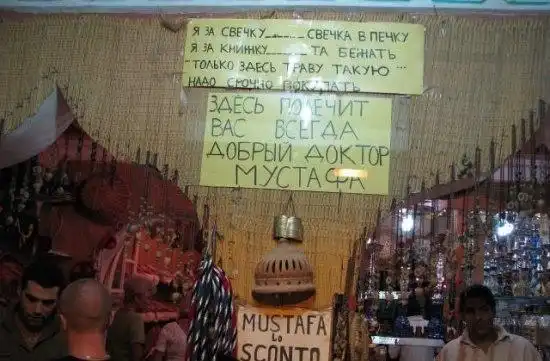 Я ЗА СВЕЧКУ______ СВЕЧКА В ПЕЧКУ
Я ЗА КНИЖКУ______ ТА БЕЖАТЬ
"ТОЛЬКО ЗДЕСЬ ТРАВУ ТАКУЮ"
НАДО СРОЧНО ПОКУПАТЬ
ЗДЕСЬ ПОЛЕЧИТ
ВАС ВСЕГДА
ДОБРЫЙ ДОКТОР
МУСТАФА
MUSTAFA
Lo
SCONTO